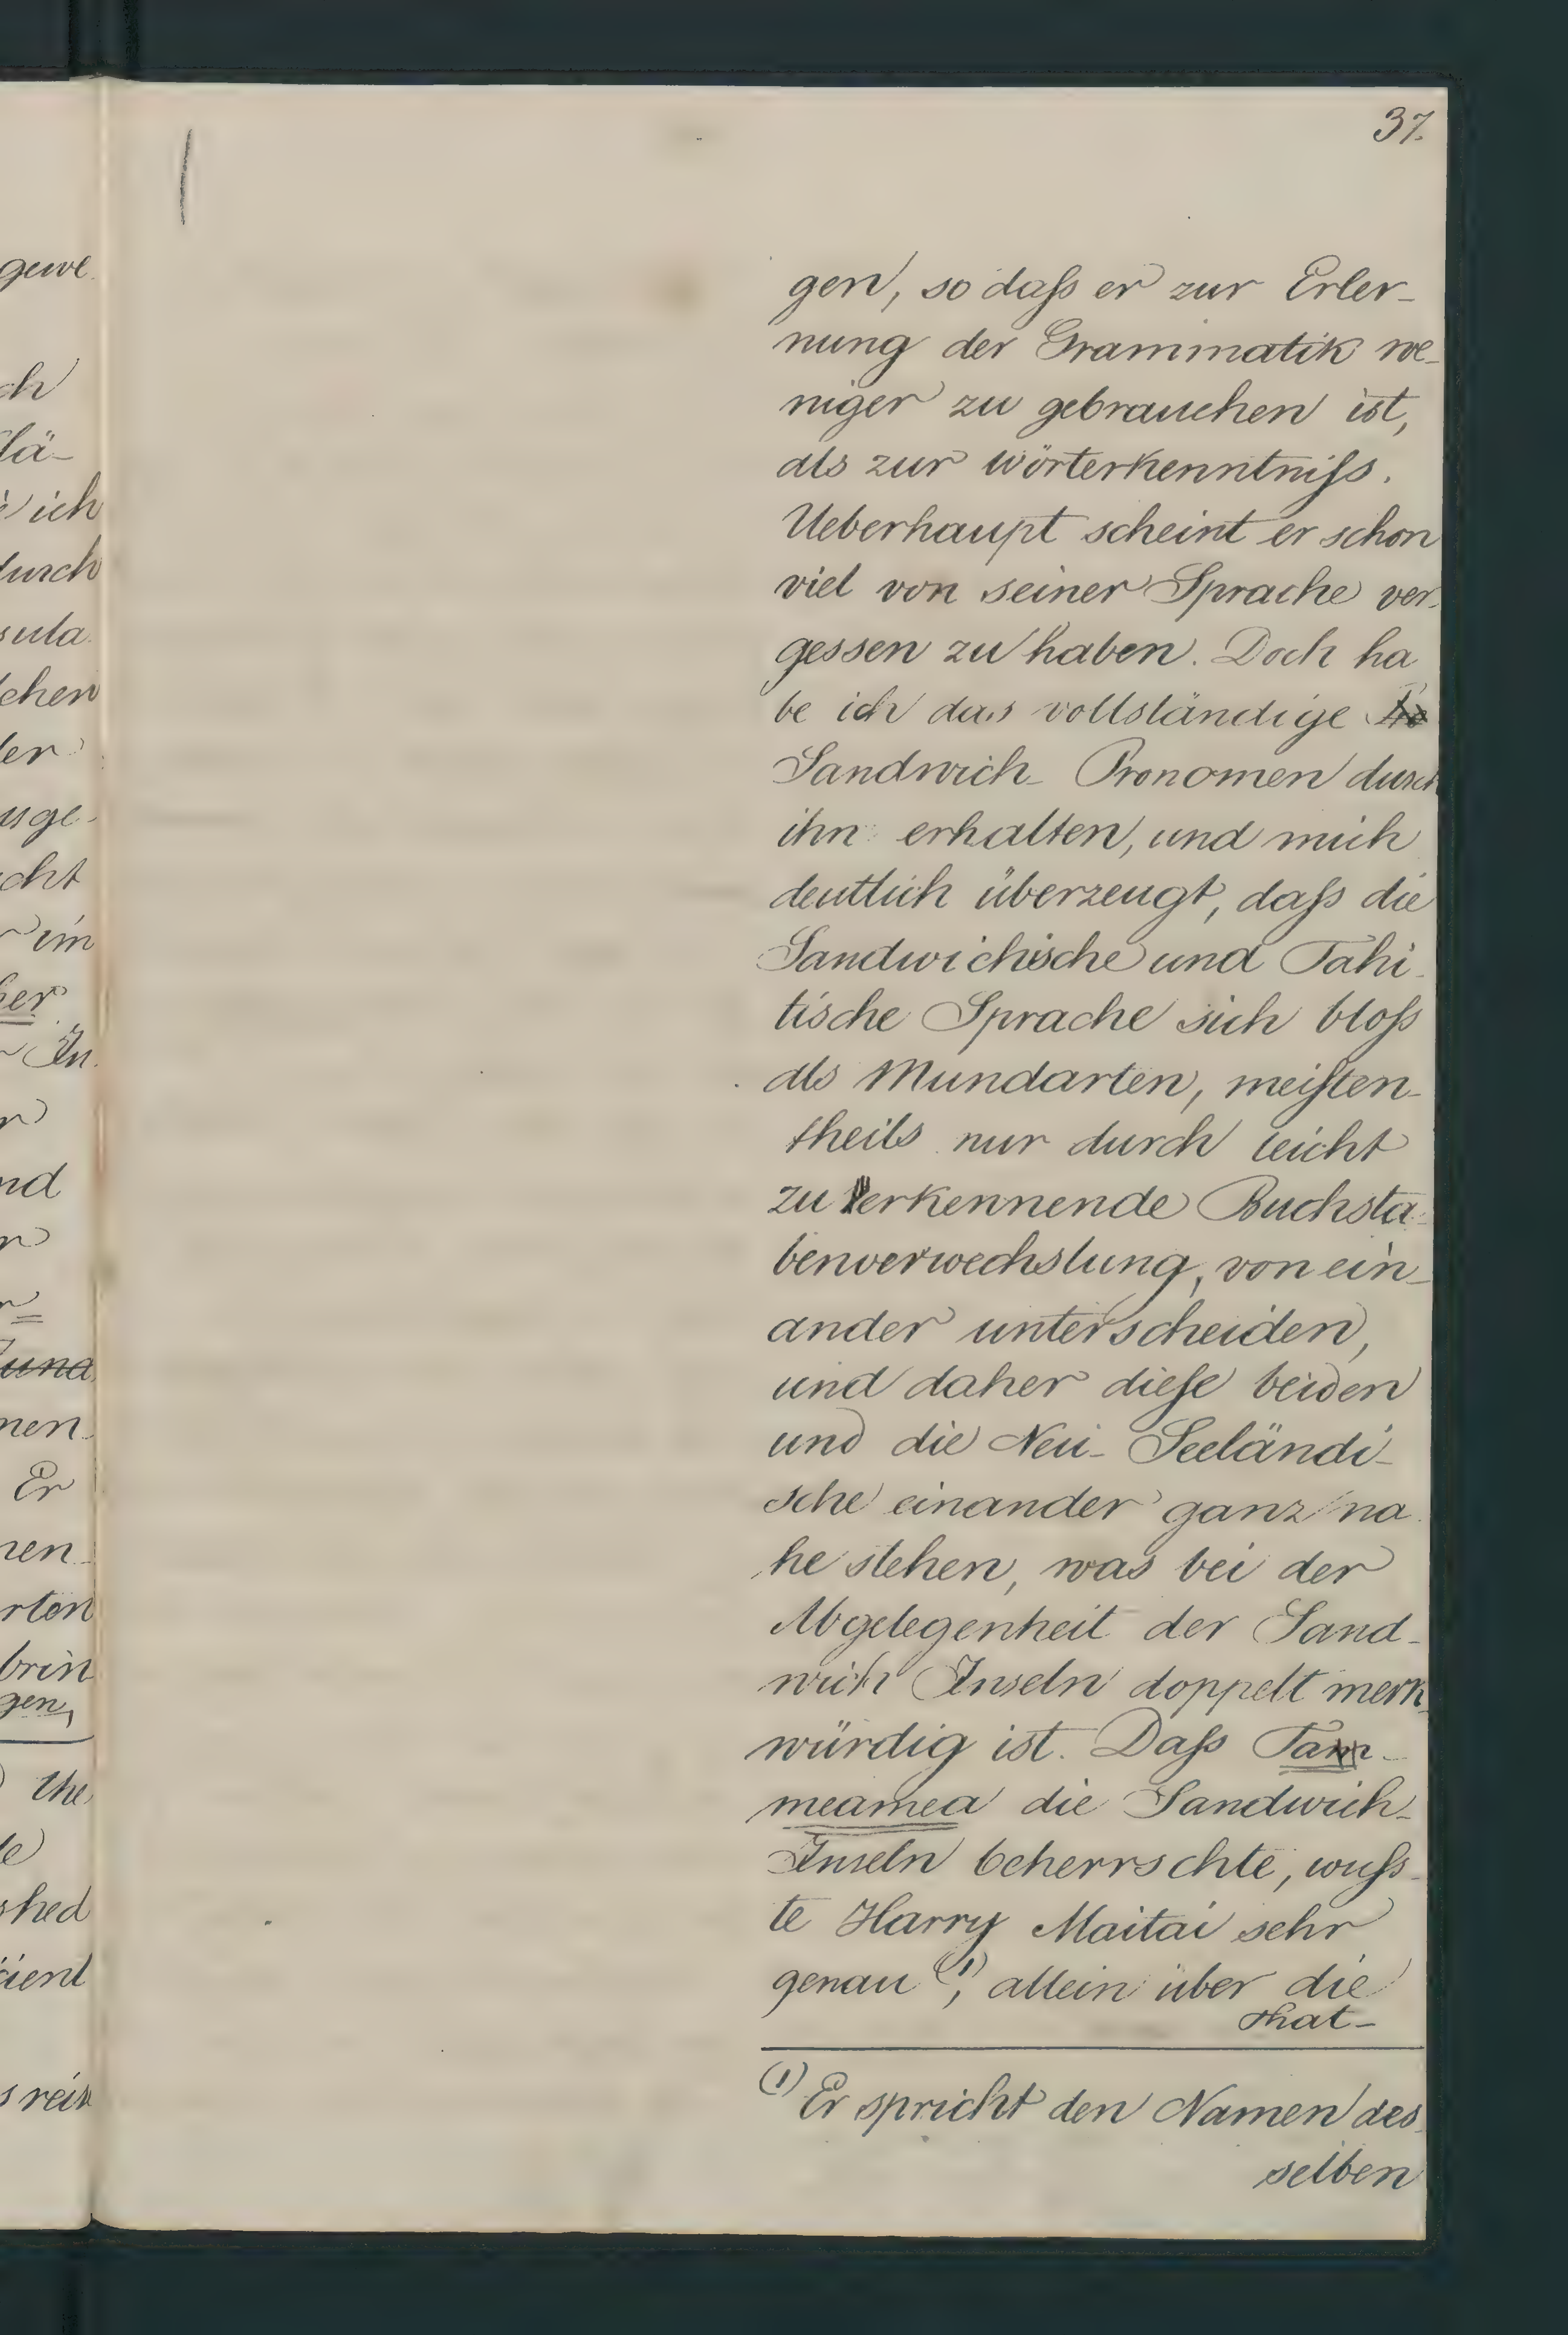 37.
gen, so daſs er zur Erler-
nung der Grammatik we-
niger zu gebrauchen ist,
als zur Wörterkenntniſs.
Ueberhaupt scheint er schon
viel von seiner Sprache ver-
gessen zu haben. Doch ha
be ich das vollständige
Sandwich- Pronomen durch
ihn erhalten, und mich
deutlich überzeugt, daſs die
Sandwichische und Tahi-
tische Sprache sich bloſs
als Mundarten, meiſten-
theils nur durch leicht
zu erkennende Buchsta-
benverwechslung, von ein-
ander unterscheiden,
und daher dieſe beiden
und die Neu- Seeländi-
sche einander ganz na
he stehen, was bei der
Abgelegenheit der Sand-
wich Inseln doppelt merk-
würdig ist. Daſs Tam-
meamea die Sandwich-
Inseln beherrschte, wuſs-
te Harry Maitai sehr
genau (1), allein über die
That-
(1) Er spricht den Namen des-
selben
gewe-
ch
lä-
ich
durch
sula-
chen
der
usge-
cht
im
ber
In-
nd
Er
nen-
rten
brin
gen,
the
shed
cient